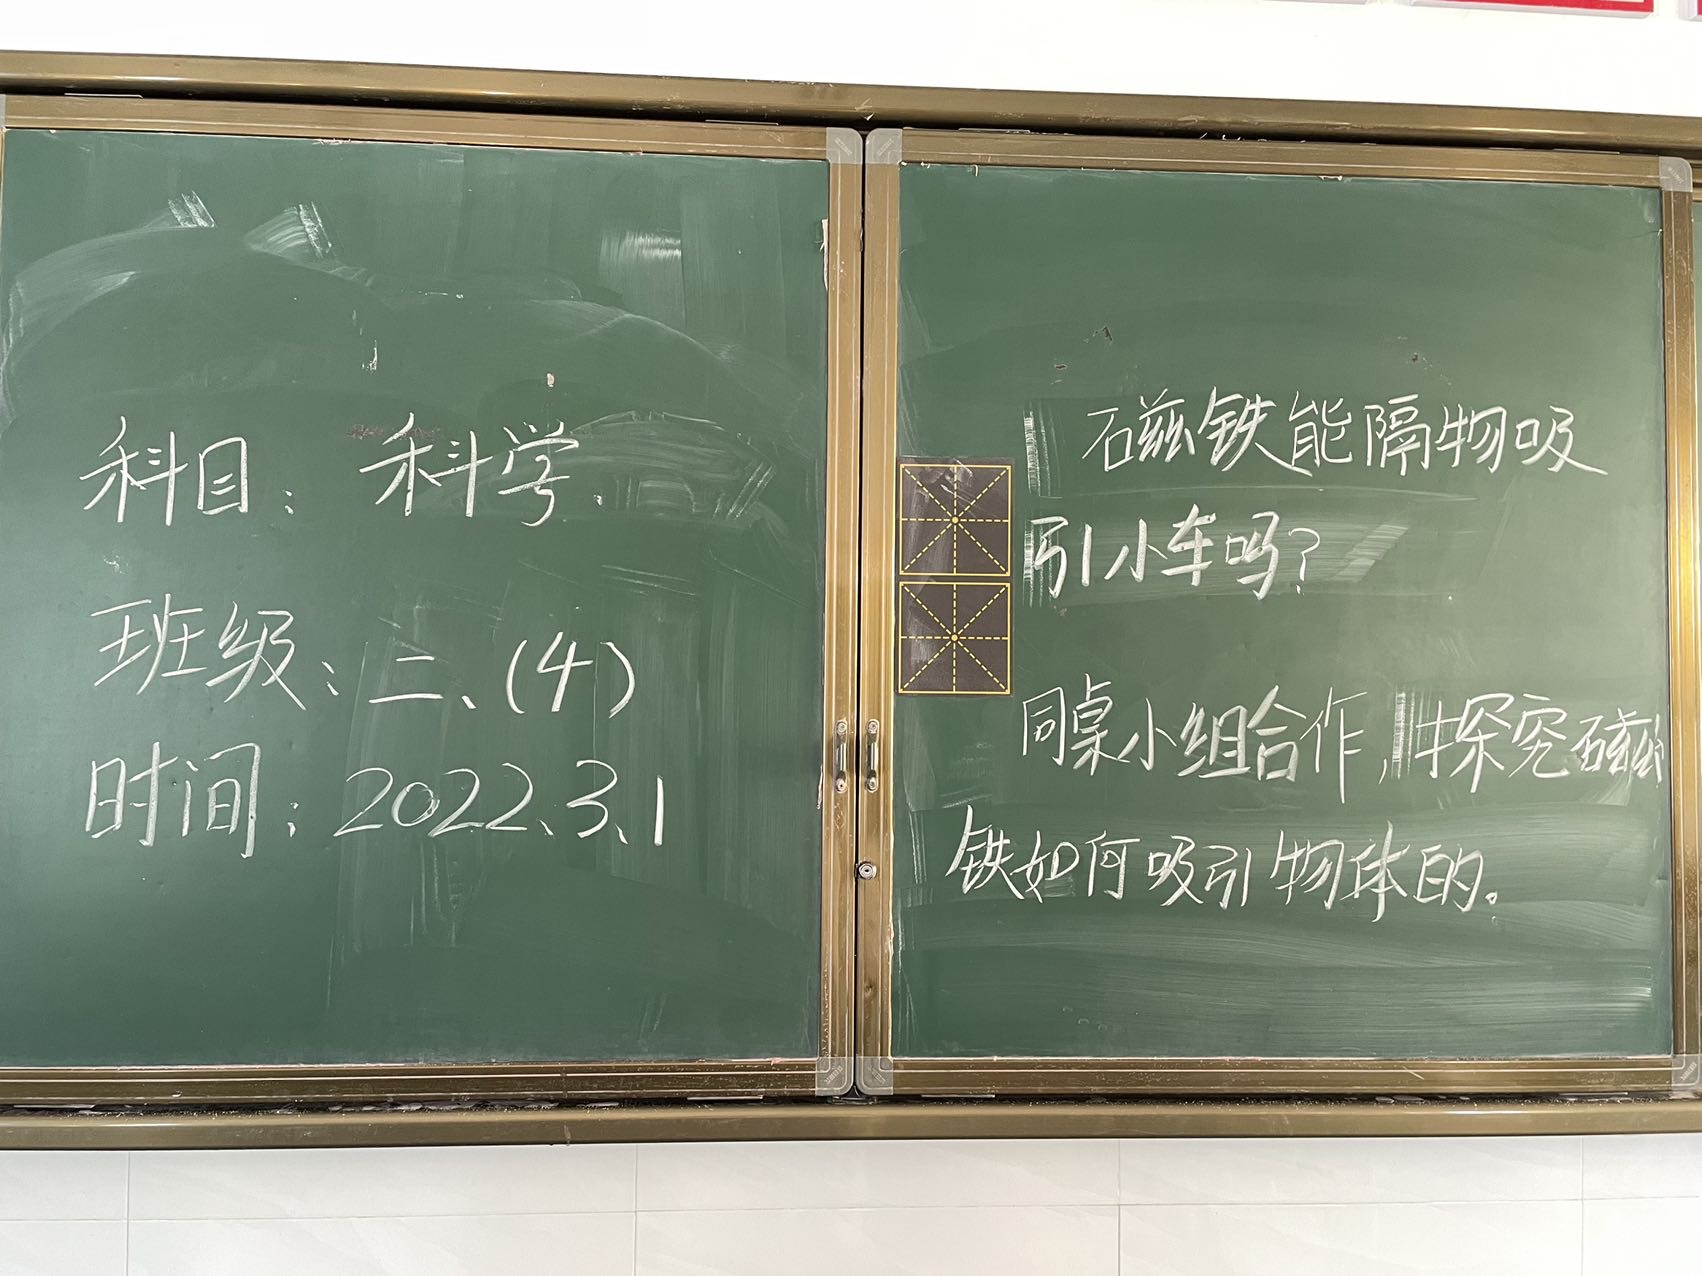 科目：科学.
班级：二、(4)
时间：2022、3、1
磁铁能隔物吸
引小车吗?
同桌小组合作,探究磁
铁如何吸引物体的。